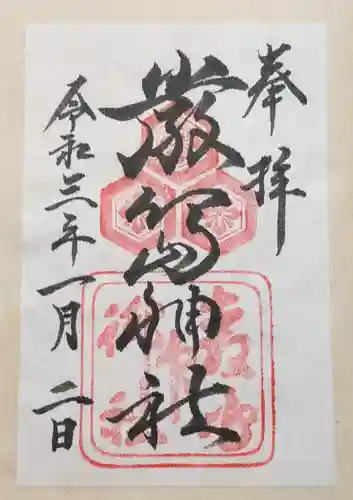 奉拝
厳島神社
令和三年一月二日